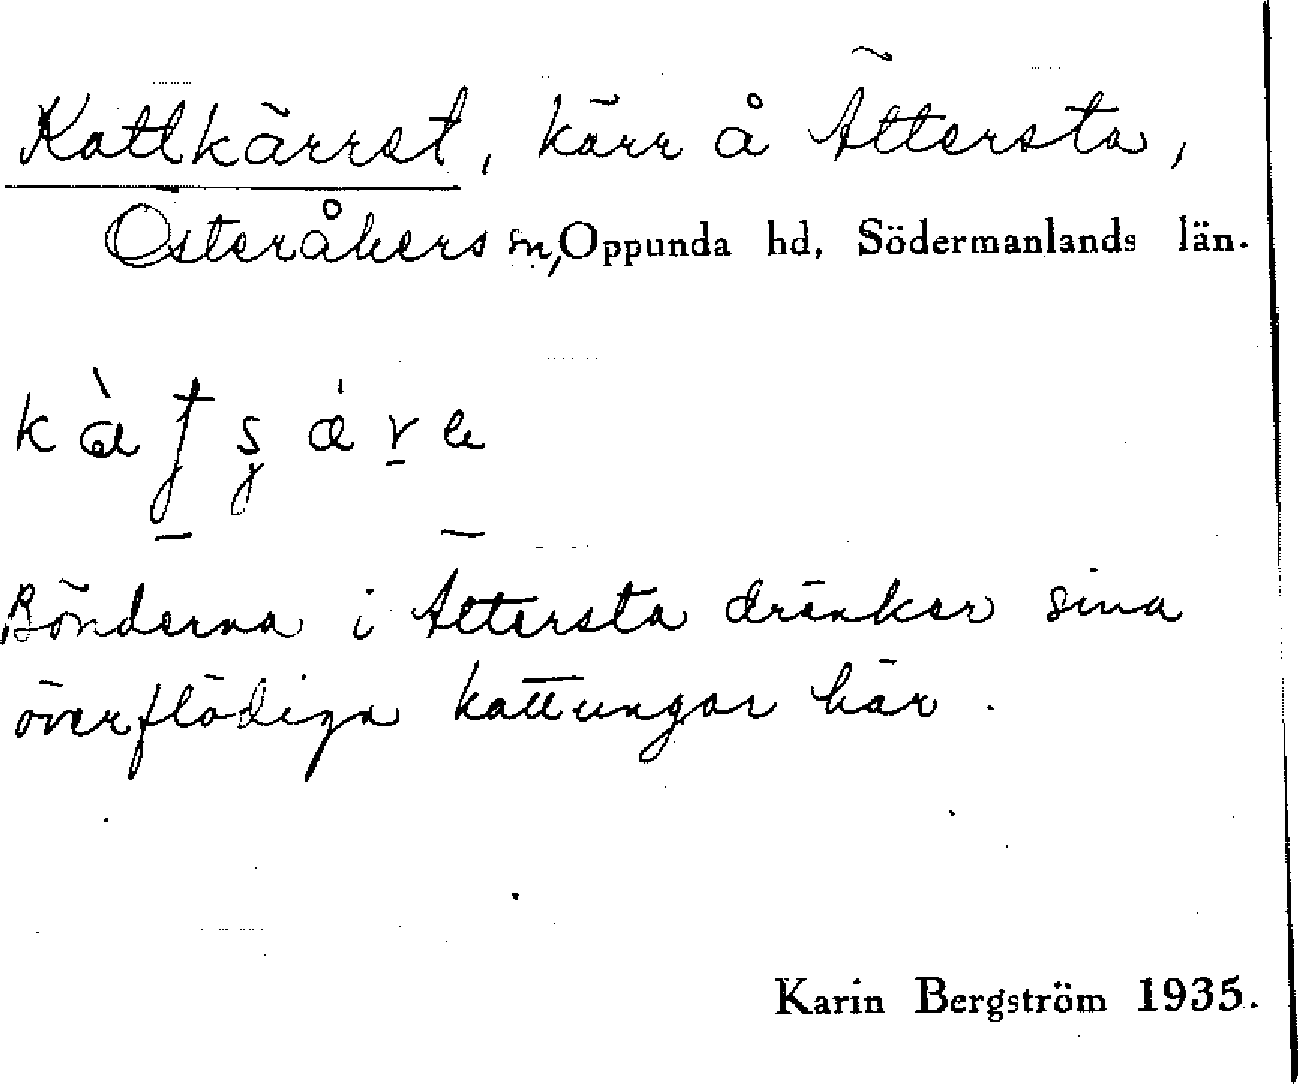 Kattkärret, kärr å Ättersta,
Österåkers sn, Oppunda hd, Södermanlands län.
Bönderna i Ättersta dränker sina
överflödiga kattungar här.
Karin Bergström 1935.